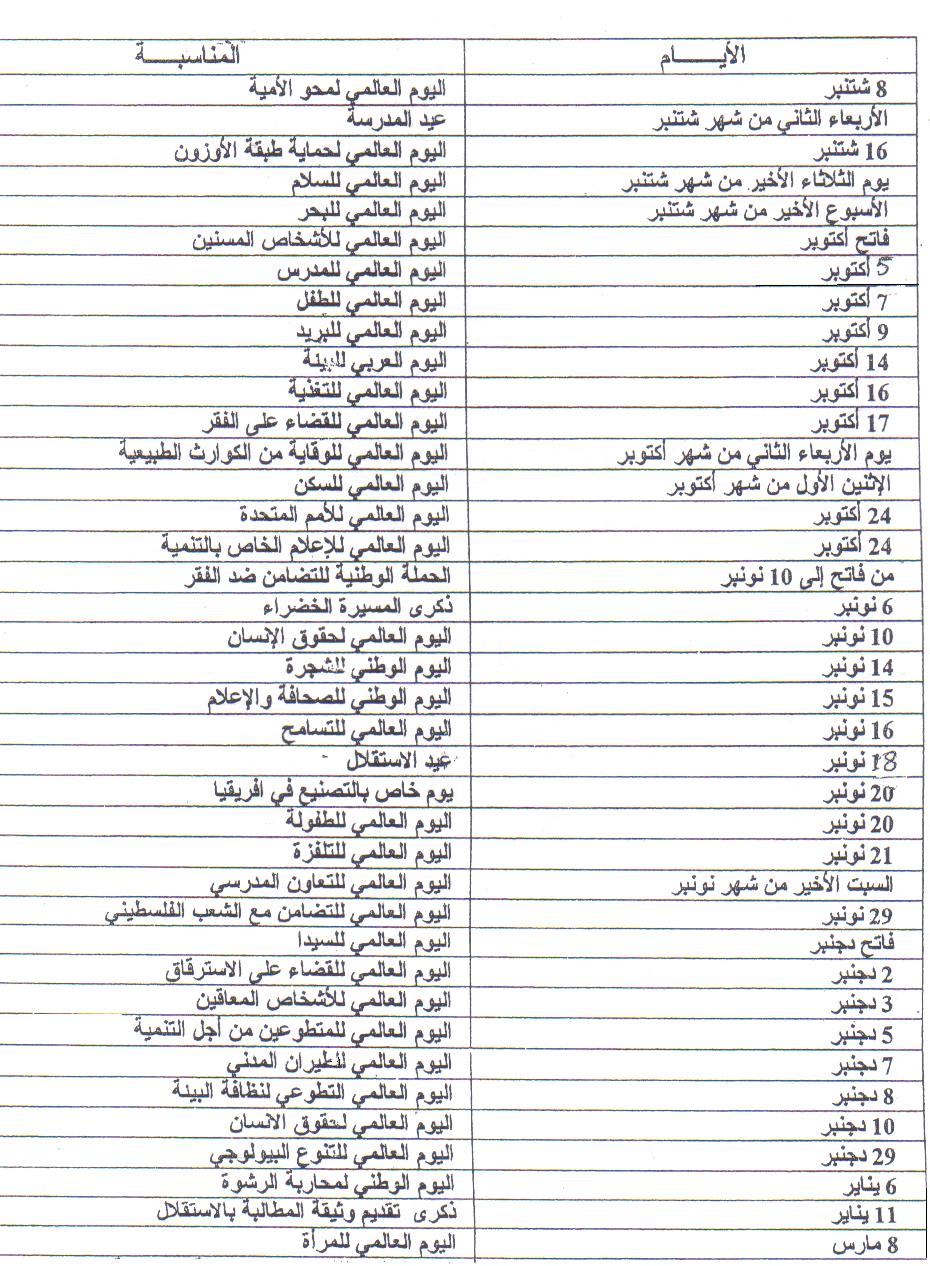 الأيـــــام المناسبـــــة
8 شتنبر اليوم العالمي لمحو الأمية
الأربعاء الثاني من شهر شتنبر عيد المدرسة
16 شتنبر اليوم العالمي لحماية طبقة الأوزون
يوم الثلاثاء الأخير من شهر شتنبر اليوم العالمي للسلام
الأسبوع الأخير من شهر شتنبر اليوم العالمي للبحر
فاتح أكتوبر اليوم العالمي للأشخاص المسنين
5 أكتوبر اليوم العالمي للمدرس
7 أكتوبر اليوم العالمي للطفل
9 أكتوبر اليوم العالمي للبريد
14 أكتوبر اليوم العربي للبيئة
16 أكتوبر اليوم العالمي للتغذية
17 أكتوبر اليوم العالمي للقضاء على الفقر
يوم الأربعاء الثاني من شهر أكتوبر اليوم العالمي للوقاية من الكوارث الطبيعية
الإثنين الأول من شهر أكتوبر اليوم العالمي للسكن
24 أكتوبر اليوم العالمي للأمم المتحدة
24 أكتوبر اليوم العالمي للإعلام الخاص بالتنمية
من فاتح إلى 10 نونبر الحملة الوطنية للتضامن ضد الفقر
6 نونبر ذكرى المسيرة الخضراء
10 نونبر اليوم العالمي لحقوق الإنسان
14 نونبر اليوم الوطني للشجرة
15 نونبر اليوم الوطني للصحافة والإعلام
16 نونبر اليوم العالمي للتسامح
18 نونبر عيد الاستقلال
20 نونبر يوم خاص بالتصنيع في افريقيا
20 نونبر اليوم العالمي للطفولة
21 نونبر اليوم العالمي للتلفزة
السبت الأخير من شهر نونبر اليوم العالمي للتعاون المدرسي
29 نونبر اليوم العالمي للتضامن مع الشعب الفلسطيني
فاتح دجنبر اليوم العالمي للسيدا
2 دجنبر اليوم العالمي للقضاء على الاسترقاق
3 دجنبر اليوم العالمي للأشخاص المعاقين
5 دجنبر اليوم العالمي للمتطوعين من أجل التنمية
7 دجنبر اليوم العالمي للطيران المدني
8 دجنبر اليوم العالمي التطوعي لنظافة البيئة
10 دجنبر اليوم العالمي لحقوق الانسان
29 دجنبر اليوم العالمي للتنوع البيولوجي
6 يناير اليوم الوطني لمحاربة الرشوة
11 يناير ذكرى تقديم وثيقة المطالبة بالاستقلال
8 مارس اليوم العالمي للمرأة